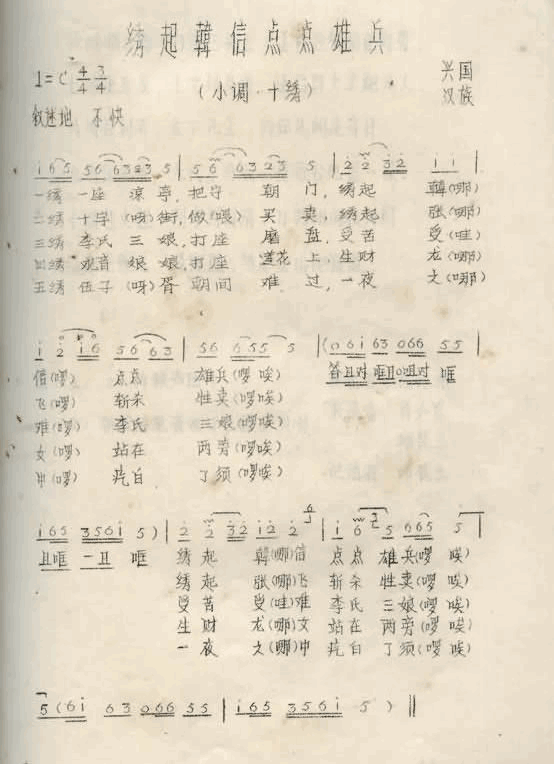 绣起韓信点点雄兵
1=C 4/4 3/4
(小调·十绣)
兴国
汉族
叙述地 不快
i 65 56 6323 5 | 56 6323 5 | 2 2 32 i i |
一绣 一座 凉亭,把守 朝 门,绣起 韓(哪)
二绣 十字 (呀)街,做(喂) 买 卖,绣起 张(哪)
三绣 李氏 三 娘,打座 磨 盘,受苦 受(哇)
四绣 观音 娘 娘,打座 莲花 上,生财 龙(哪)
五绣 伍子 (呀)胥 朝间 难 过,一夜 文(哪)
i 2 i6 56 63 | 56 655 5 | (06i 63 066 55 |
信(啰) 点点 雄兵(啰唉) 答且对 哐且0咀对 哐
飞(啰) 斩杀 牲卖(啰唉)
难(啰) 李氏 三娘(啰唉)
女(啰) 站在 两旁(啰唉)
中(啰) 白 了须(啰唉)
i65 356i 5) | 2 2 32 i2 2 | i 6 5 665 5
且哐 一且 哐 绣 起 韓(哪)信 点 点 雄 兵(啰 唉)
绣 起 张(哪)飞 斩 杀 牲 卖(啰 唉)
受 苦 受(哇)难 李 氏 三 娘(啰 唉)
生 财 龙(哪)女 站 在 两 旁(啰 唉)
一 夜 文(哪)中 白 了 须(啰 唉)
5 (6i 63 066 55 | i65 356i 5 ) ‖